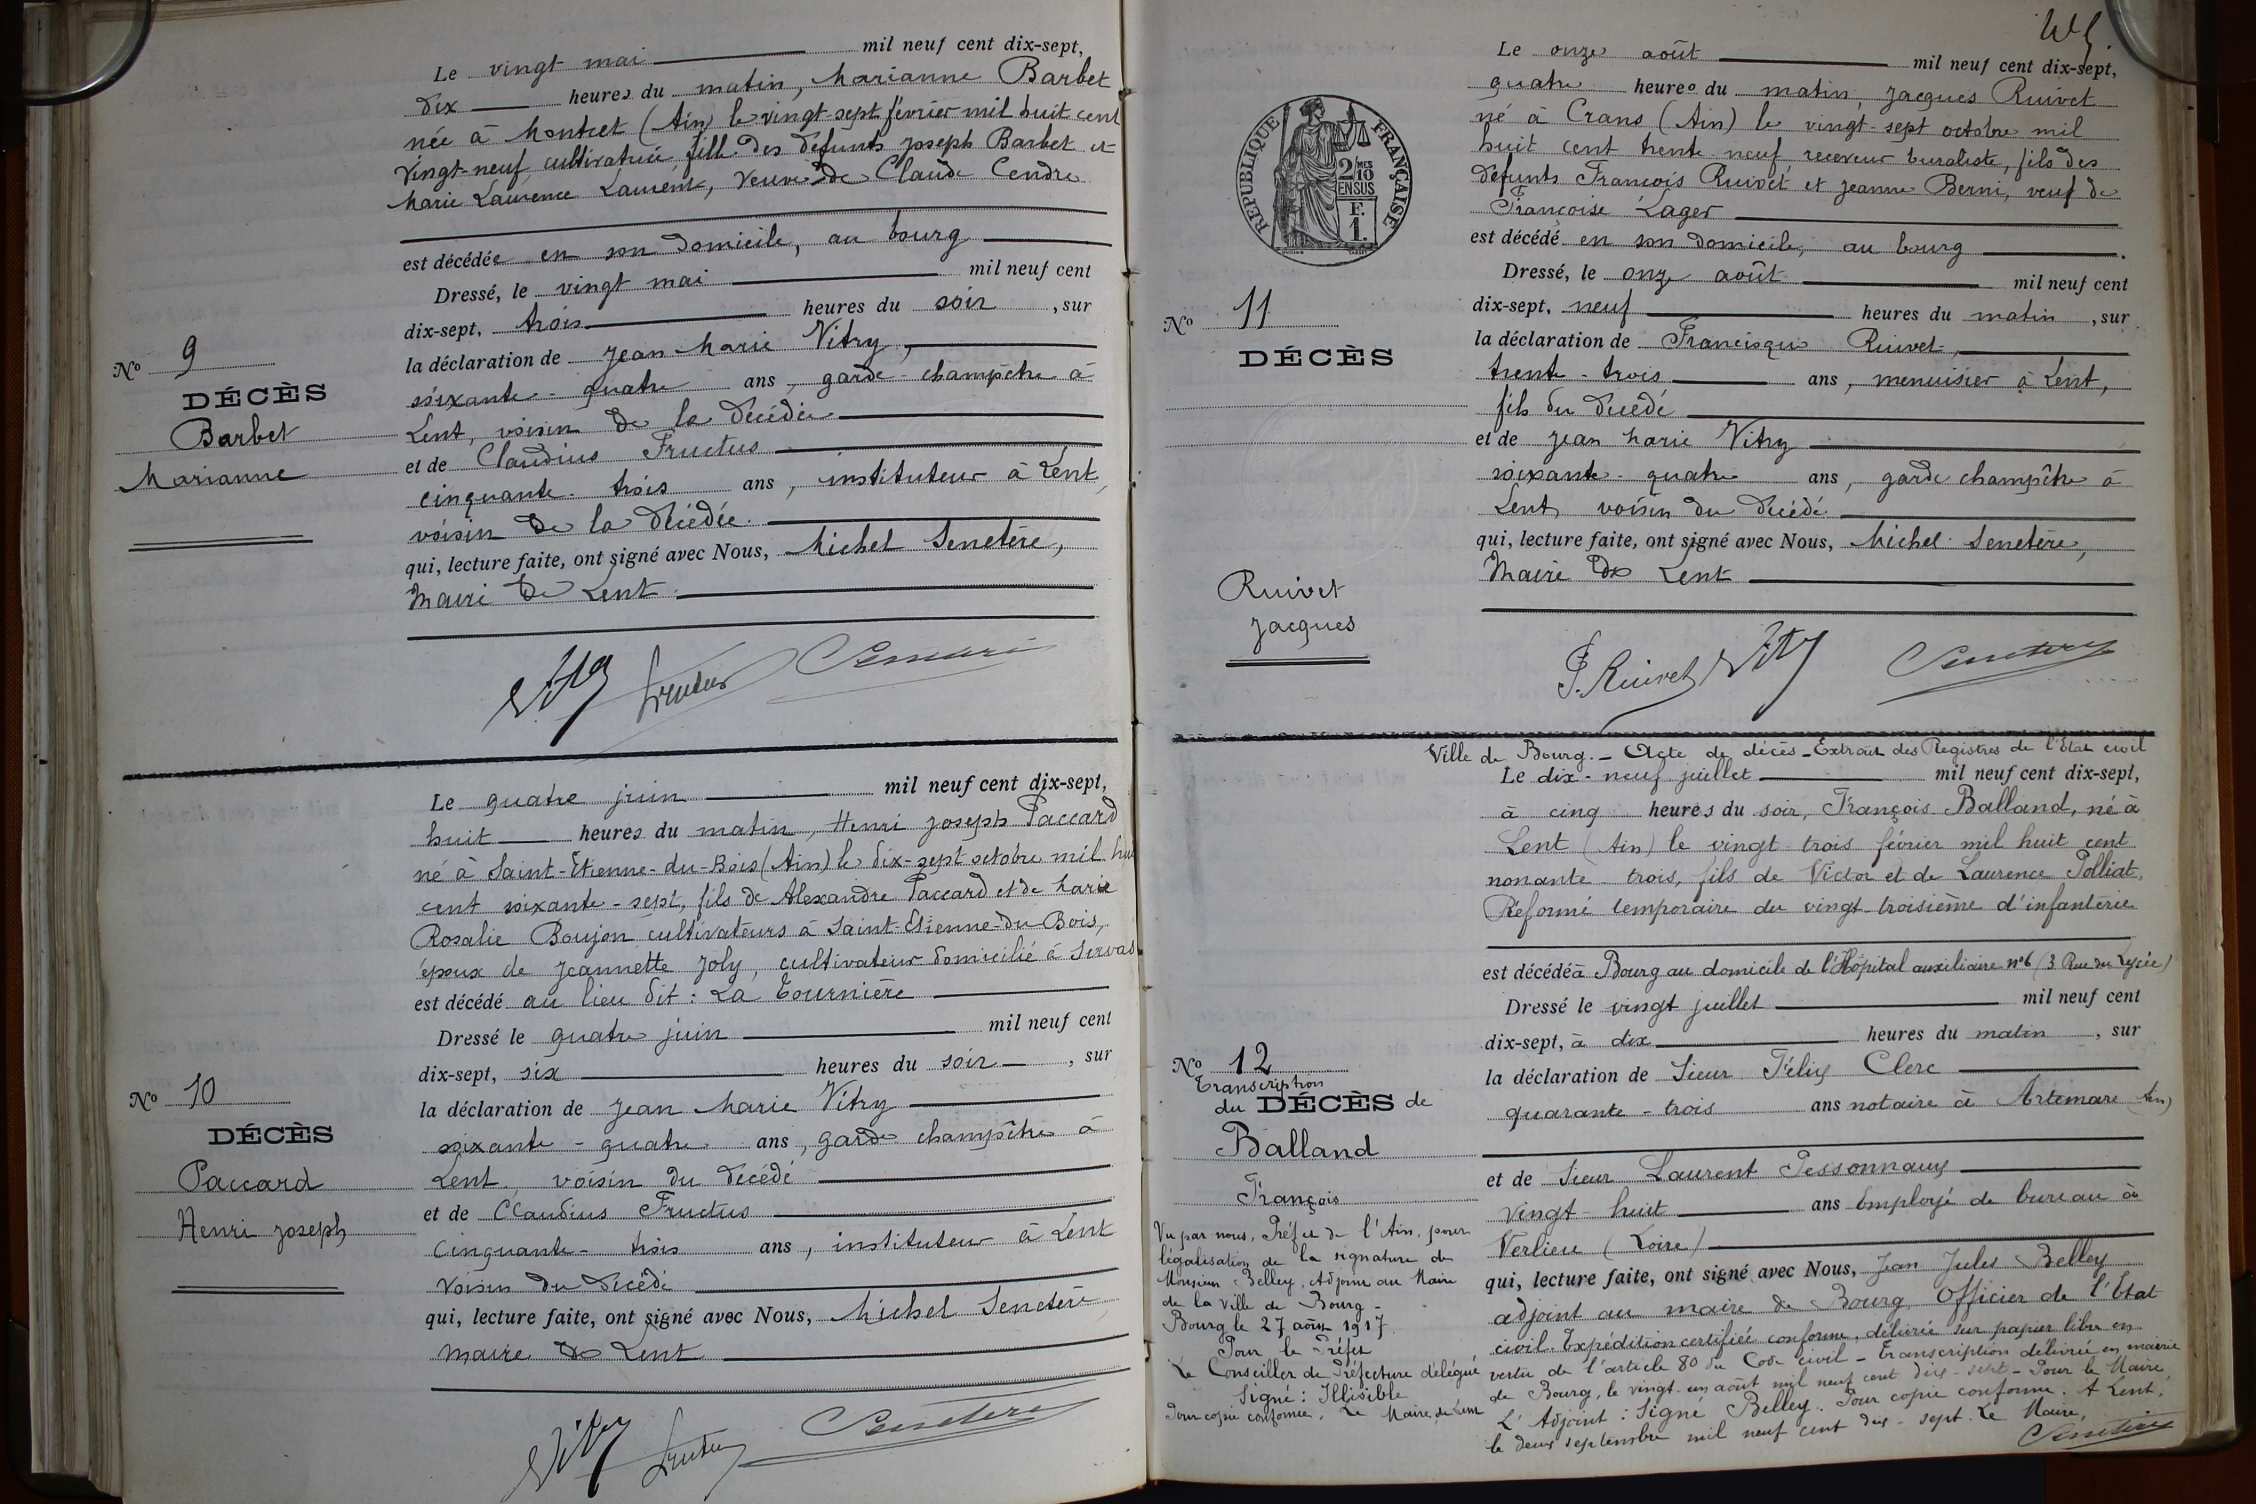 Le vingt mai mil neuf cent dix-sept,
dix heures du matin, Marianne Barbet
née à Montcet (Ain) le vingt-sept février mil huit cent
vingt-neuf cultivatrice fille des défunts Joseph Barbet et
Marie Laurence Laurent, veuve de Claude Cendre
est décédée en son domicile, au bourg
Dressé, le vingt mai mil neuf cent
dix-sept, trois heures du soir, sur
la déclaration de Jean Marie Vitry,
soixante-quatre ans, garde-champêtre à
Lent, voisin de la décédée
et de Claudius Fructus
cinquante-trois ans, instituteur à Lent,
voisin de la décédée.
qui, lecture faite, ont signé avec Nous, Michel Senetère,
Maire de Lent.
No 9
DÉCÈS
Barbet
Marianne
Vitry Fructus Senetère
Le quatre juin mil neuf cent dix-sept,
huit heures du matin, Henri Joseph Paccard
né à Saint-Etienne-du-Bois (Ain) le dix-sept octobre mil huit
cent soixante-sept, fils de Alexandre Paccard et de Marie
Rosalie Boujon cultivateurs à Saint-Etienne-du Bois,
époux de Jeannette Joly, cultivateur domicilié à Servas
est décédé au lieu dit : La Tournière
Dressé le quatre juin mil neuf cent
dix-sept, six heures du soir, sur
la déclaration de Jean Marie Vitry
soixante-quatre ans, garde champêtre à
Lent, voisin du décédé
et de Claudius Fructus
cinquante-trois ans, instituteur à Lent
voisin du décédé
qui, lecture faite, ont signé avec Nous, Michel Senetère
Maire de Lent
No 10
DÉCÈS
Paccard
Henri Joseph
Vitry Fructus Senetère
RÉPUBLIQUE FRANÇAISE
2/10
EN SUS
F.
1.
Le onze août mil neuf cent dix-sept,
quatre heures du matin, Jacques Ruivet
né à Crans (Ain) le vingt-sept octobre mil
huit cent trente neuf receveur buraliste, fils des
défunts François Ruivet et Jeanne Berni, veuf de
Françoise Lager
est décédé en son domicile, au bourg.
Dressé, le onze août mil neuf cent
dix-sept, neuf heures du matin, sur
la déclaration de Francisque Ruivet,
trente-trois ans, menuisier à Lent,
fils du décédé
et de Jean Marie Vitry
soixante-quatre ans, garde champêtre à
Lent, voisin du décédé
qui, lecture faite, ont signé avec Nous, Michel Senetère,
Maire de Lent
No 11
DÉCÈS
Ruivet
Jacques
F. Ruivet Vitry Senetère
Ville de Bourg.- Acte de décès - Extrait des Registres de l'Etat civil
Le dix-neuf juillet mil neuf cent dix-sept,
à cinq heures du soir, François Balland, né à
Lent (Ain) le vingt-trois février mil huit cent
nonante-trois, fils de Victor et de Laurence Polliat,
Réformé temporaire du vingt-troisième d'infanterie
est décédé à Bourg au domicile de l'Hôpital auxiliaire no 6 (3 Rue du Lycée)
Dressé le vingt juillet mil neuf cent
dix-sept, à dix heures du matin, sur
la déclaration de Sieur Félix Clerc
quarante-trois ans notaire à Artemare (Ain)
et de Sieur Laurent Pessonnaux
vingt-huit ans employé de bureau à
Verlieu (Loire)
qui, lecture faite, ont signé avec Nous, Jean Jules Belley
adjoint au maire de Bourg Officier de l'Etat
civil. Expédition certifiée conforme, délivrée sur papier libre en
vertu de l'article 80 du Code civil - Transcription délivrée en mairie
de Bourg, le vingt-un août mil neuf cent dix-sept - Pour le Maire,
L'Adjoint : Signé Belley. Pour copie conforme. A Lent,
le deux septembre mil neuf cent dix-sept. Le Maire,
Senetère
No 12
Transcription
du DÉCÈS de
Balland
François
Vu par nous, Préfet de l'Ain, pour
légalisation de la signature de
Monsieur Belley, Adjoint au Maire
de la Ville de Bourg -
Bourg le 27 août 1917.
Pour le Préfet
Le Conseiller de Préfecture délégué
Signé : Illisible
Pour copie conforme. Le Maire de Lent